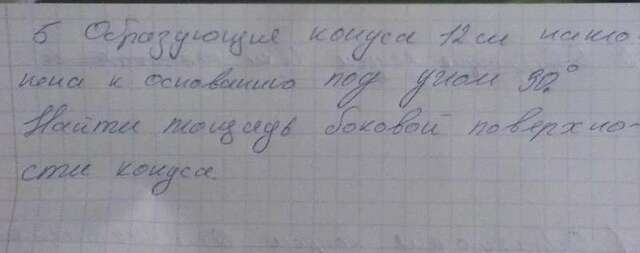 5 Образующие конуса 12см накло
нена к основанию под углом 30°
Найти площадь боковой поверхно-
сти конуса